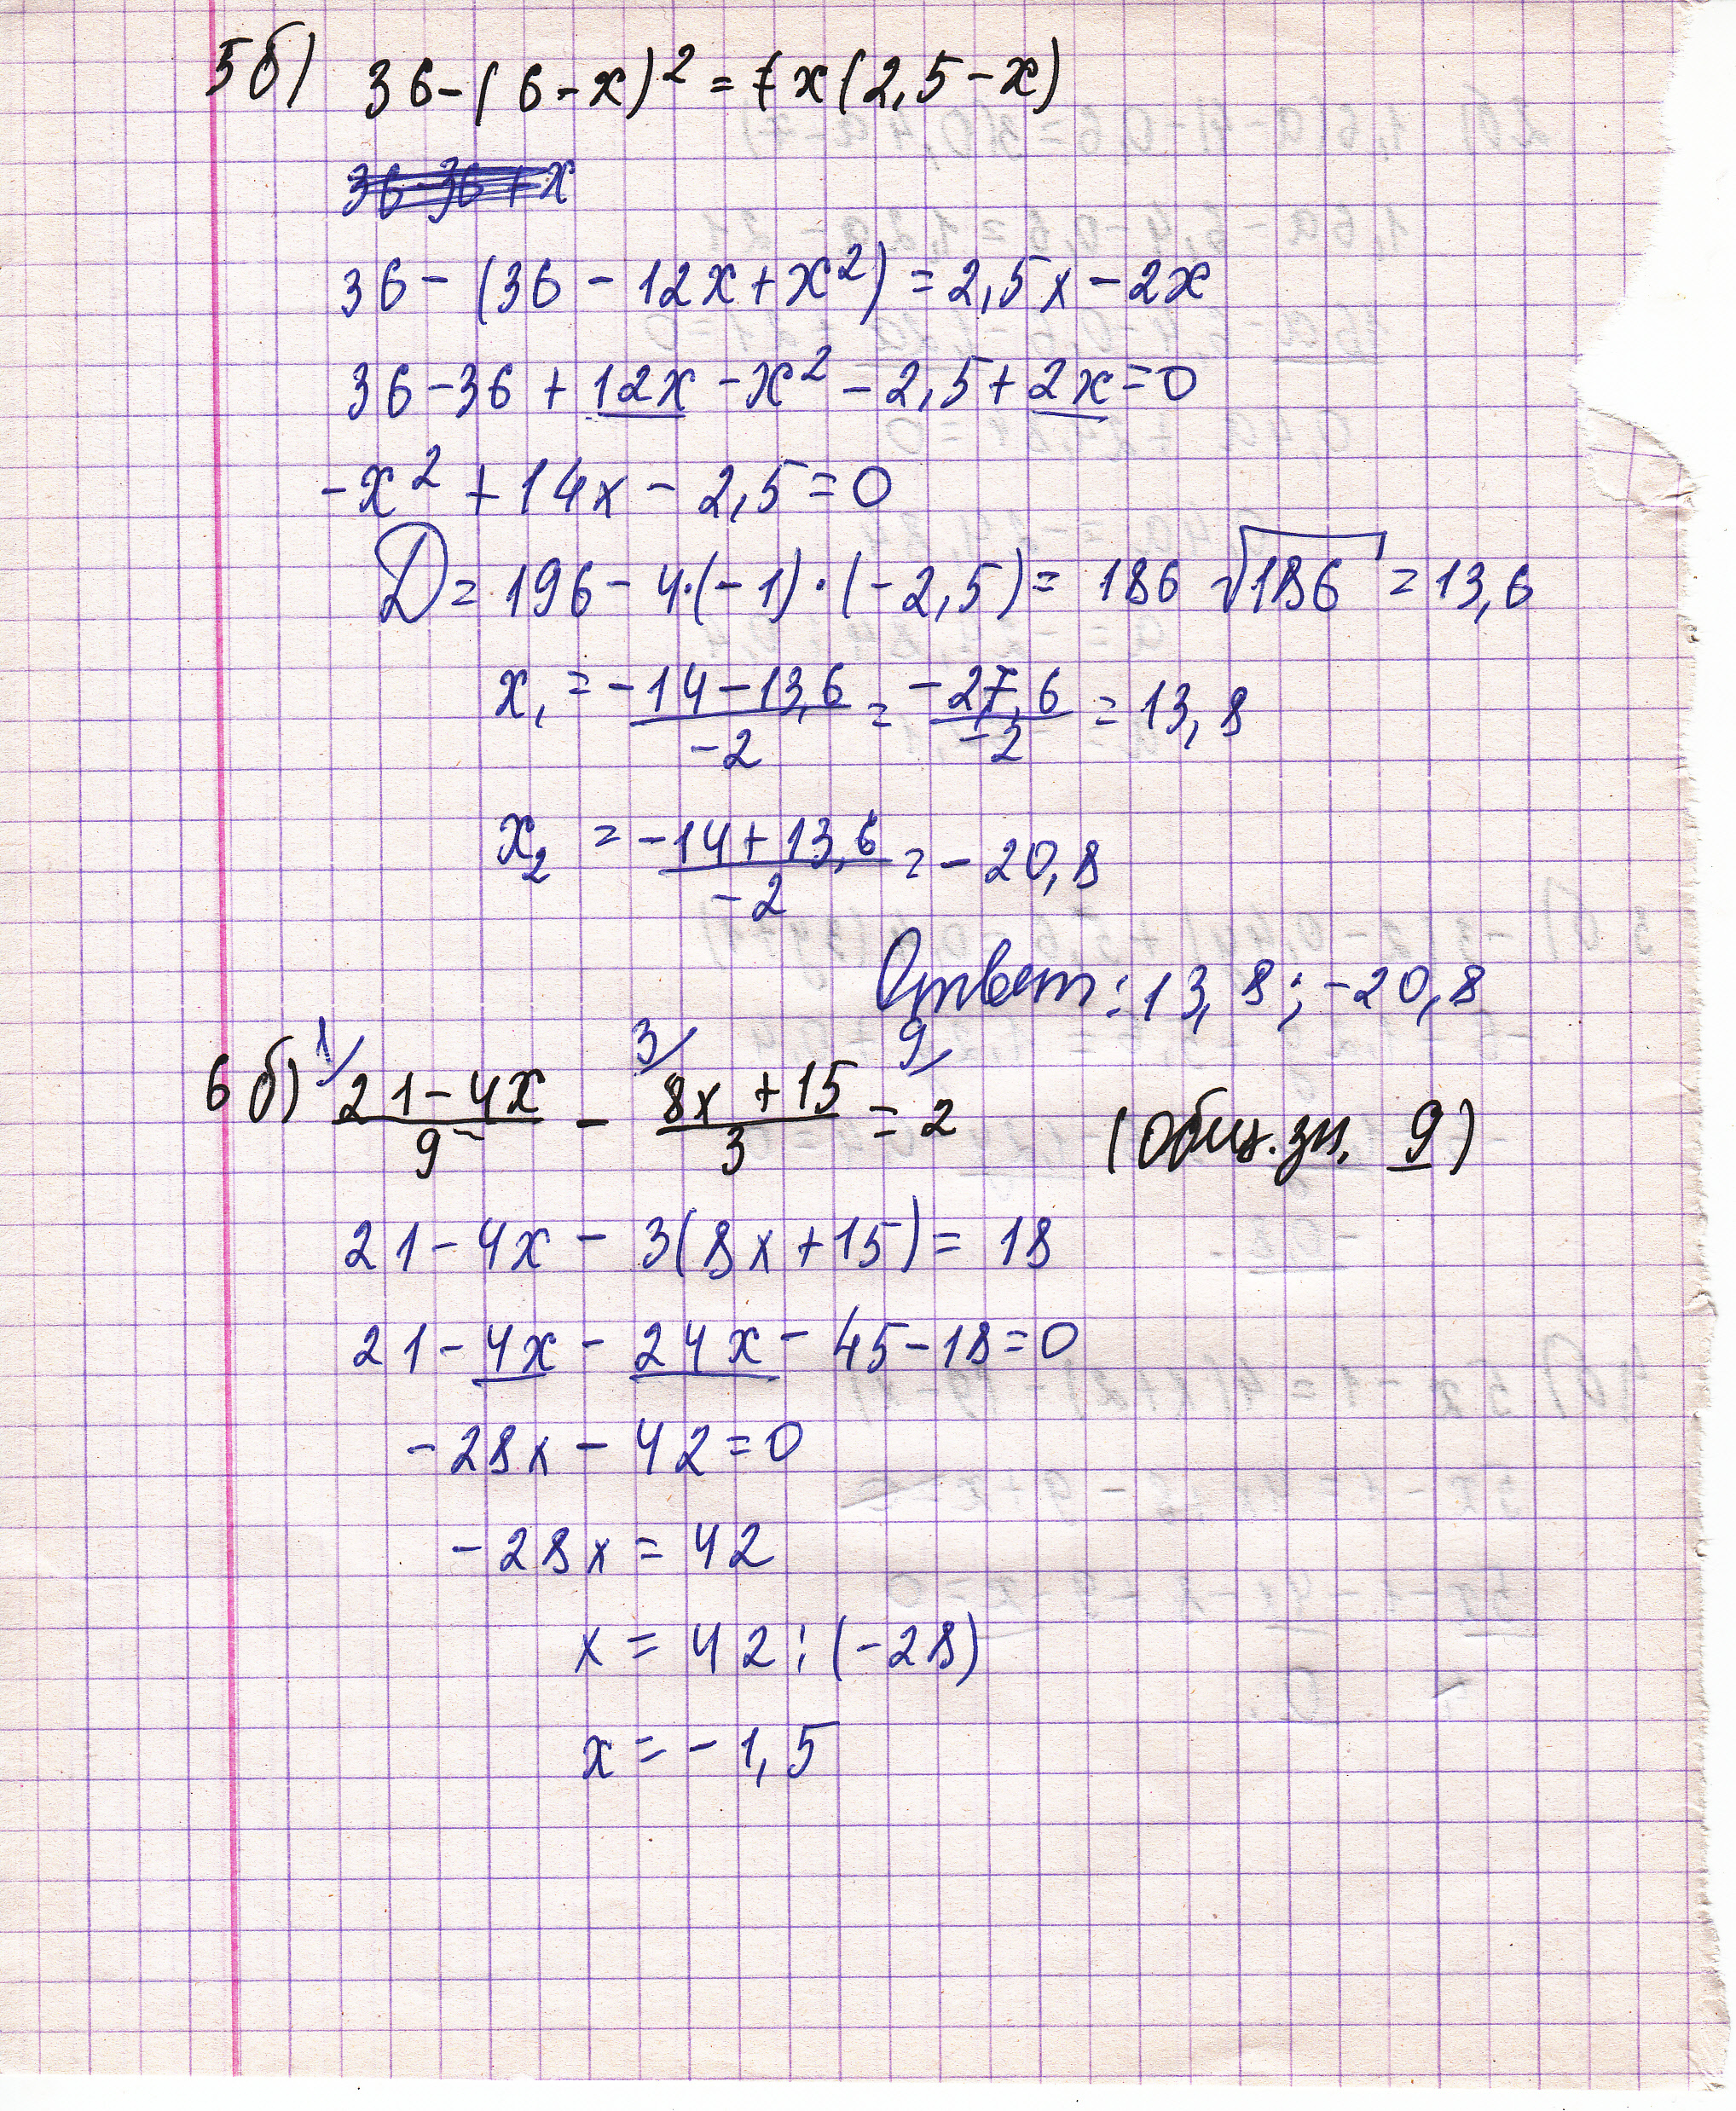 5б) 36-(6-x)² = x(2,5-x)
36-36+x
36-(36-12x+x²) = 2,5x-2x
36-36+12x-x²-2,5+2x=0
-x²+14x-2,5=0
D=196-4·(-1)·(-2,5)= 186 √186 = 13,6
x₁ = (-14-13,6)/-2 = -27,6/-2 = 13,8
x₂ = (-14+13,6)/-2 = -20,8
Ответ: 13,8; -20,8
1/ 3/ 9/
6б) (21-4x)/9 - (8x+15)/3 = 2 (Общ. зн. 9)
21-4x-3(8x+15)= 18
21-4x-24x-45-18=0
-28x-42=0
-28x=42
x=42:(-28)
x=-1,5